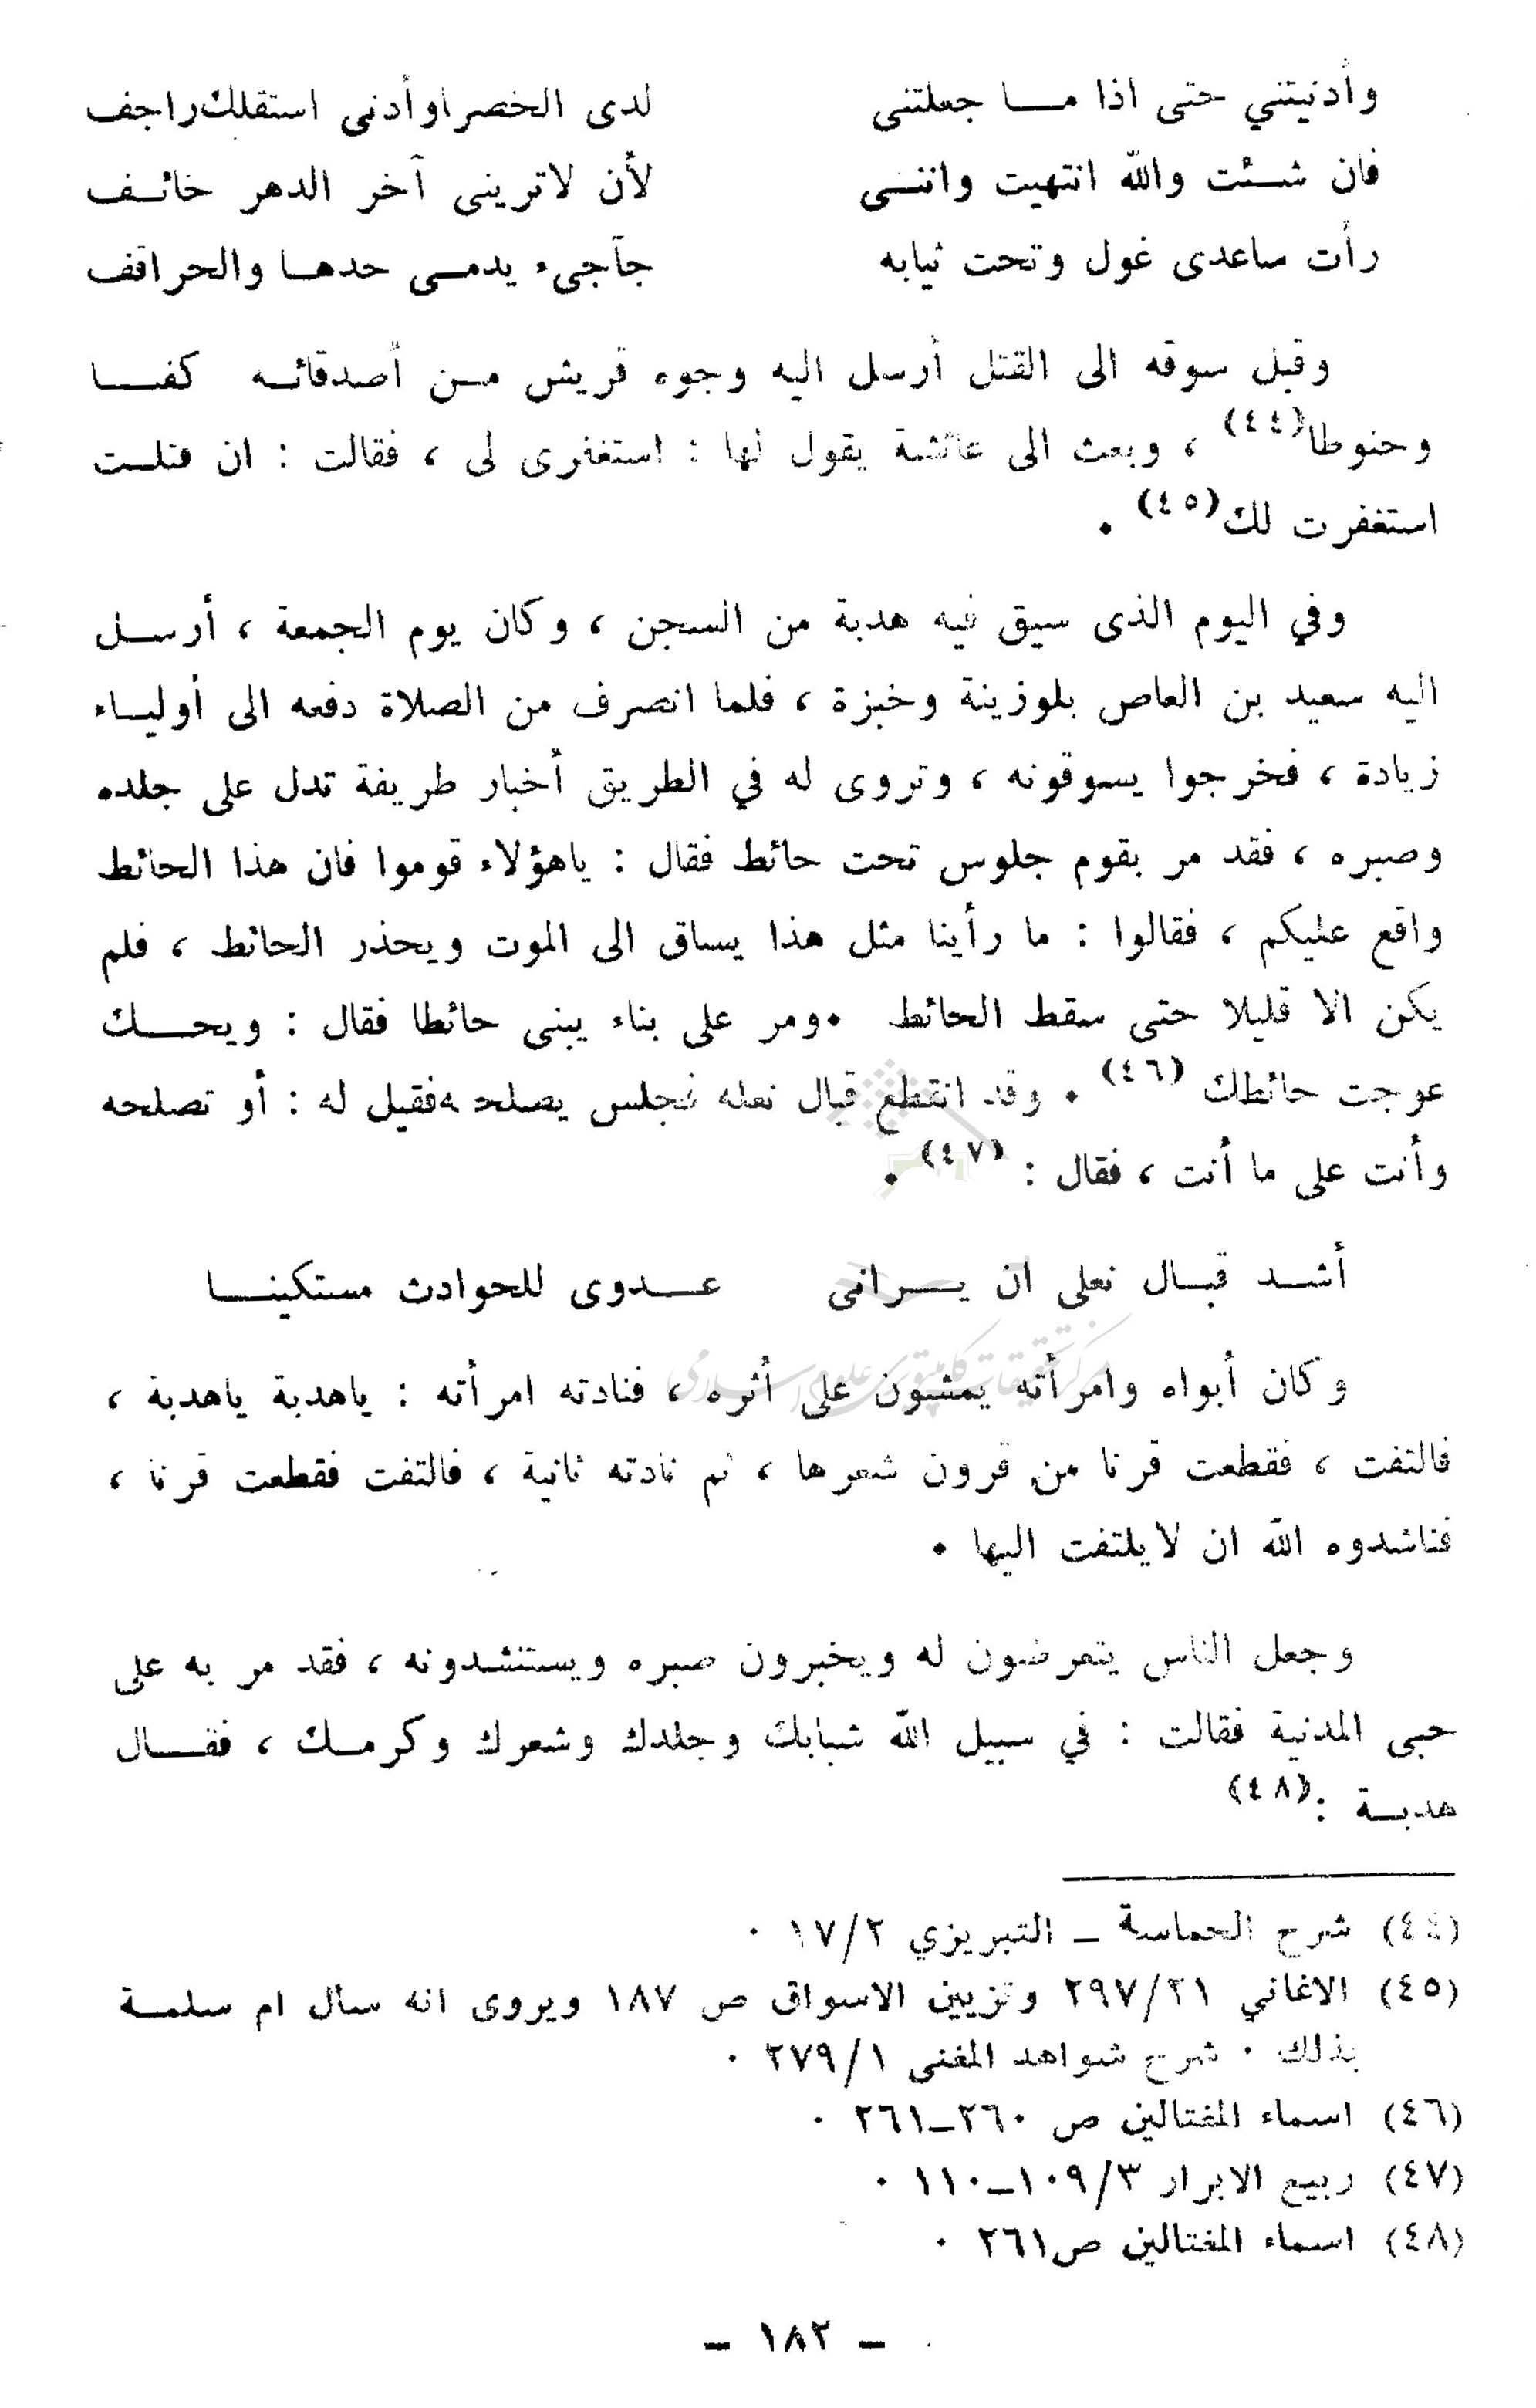 وأدنيتني حتى اذا مـــا جعلتنى لدى الخصر اوأدنى استقلك راجف
فان شـــئت والله انتهيت واننـــى لأن لاترينى آخر الدهر خائــف
رأت ساعدى غول وتحت ثيابه جآجىء يدمــى حدهــا والحراقف
وقبل سوقه الى القتل أرسل اليه وجوه قريش مــن أصدقائــه كفنــا
وحنوطا(٤٤) ، وبعث الى عائشة يقول لها : استغفرى لى ، فقالت : ان قتلــت
استغفرت لك(٤٥) .
وفي اليوم الذى سيق فيه هدبة من السجن ، وكان يوم الجمعة ، أرســل
اليه سعيد بن العاص بلوزينة وخبزة ، فلما انصرف من الصلاة دفعه الى أوليــاء
زيادة ، فخرجوا يسوقونه ، وتروى له في الطريق أخبار طريفة تدل على جلده
وصبره ، فقد مر بقوم جلوس تحت حائط فقال : ياهؤلاء قوموا فان هذا الحائط
واقع عليكم ، فقالوا : ما رأينا مثل هذا يساق الى الموت ويحذر الحائط ، فلم
يكن الا قليلا حتى سقط الحائط .ومر على بناء يبنى حائطا فقال : ويحــــك
عوجت حائطك (٤٦) . وقد انقطع قبال نعله فجلس يصلحه فقيل له : أو تصلحه
وأنت على ما أنت ، فقال : (٤٧) .
أشــد قبــال نعلى ان يـــرانى عـــدوى للحوادث مستكينـــا
وكان أبواه وامرأته يمشون على أثره ، فنادته امرأته : ياهدبة ياهدبة ،
فالتفت ، فقطعت قرنا من قرون شعرها ، ثم نادته ثانية ، فالتفت فقطعت قرنا ،
فناشدوه الله ان لايلتفت اليها .
وجعل الناس يتعرضون له ويخبرون صبره ويستنشدونه ، فقد مر به على
حبى المدنية فقالت : في سبيل الله شبابك وجلدك وشعرك وكرمــك ، فقــــال
هدبــة :(٤٨)
(٤٤) شرح الحماسة ــ التبريزي ١٧/٢ .
(٤٥) الاغاني ٢٩٧/٢١ وتزيين الاسواق ص ١٨٧ ويروى انه سأل ام سلمــة
بذلك . شرح شواهد المغنى ٢٧٩/١ .
(٤٦) اسماء المغتالين ص ٢٦٠ــ٢٦١ .
(٤٧) ربيع الابرار ١٠٩/٣ــ١١٠ .
(٤٨) اسماء المغتالين ص٢٦١ .
ــ ١٨٢ ــ
مركز تحقيقات كامپيوترى علوم اسلامى